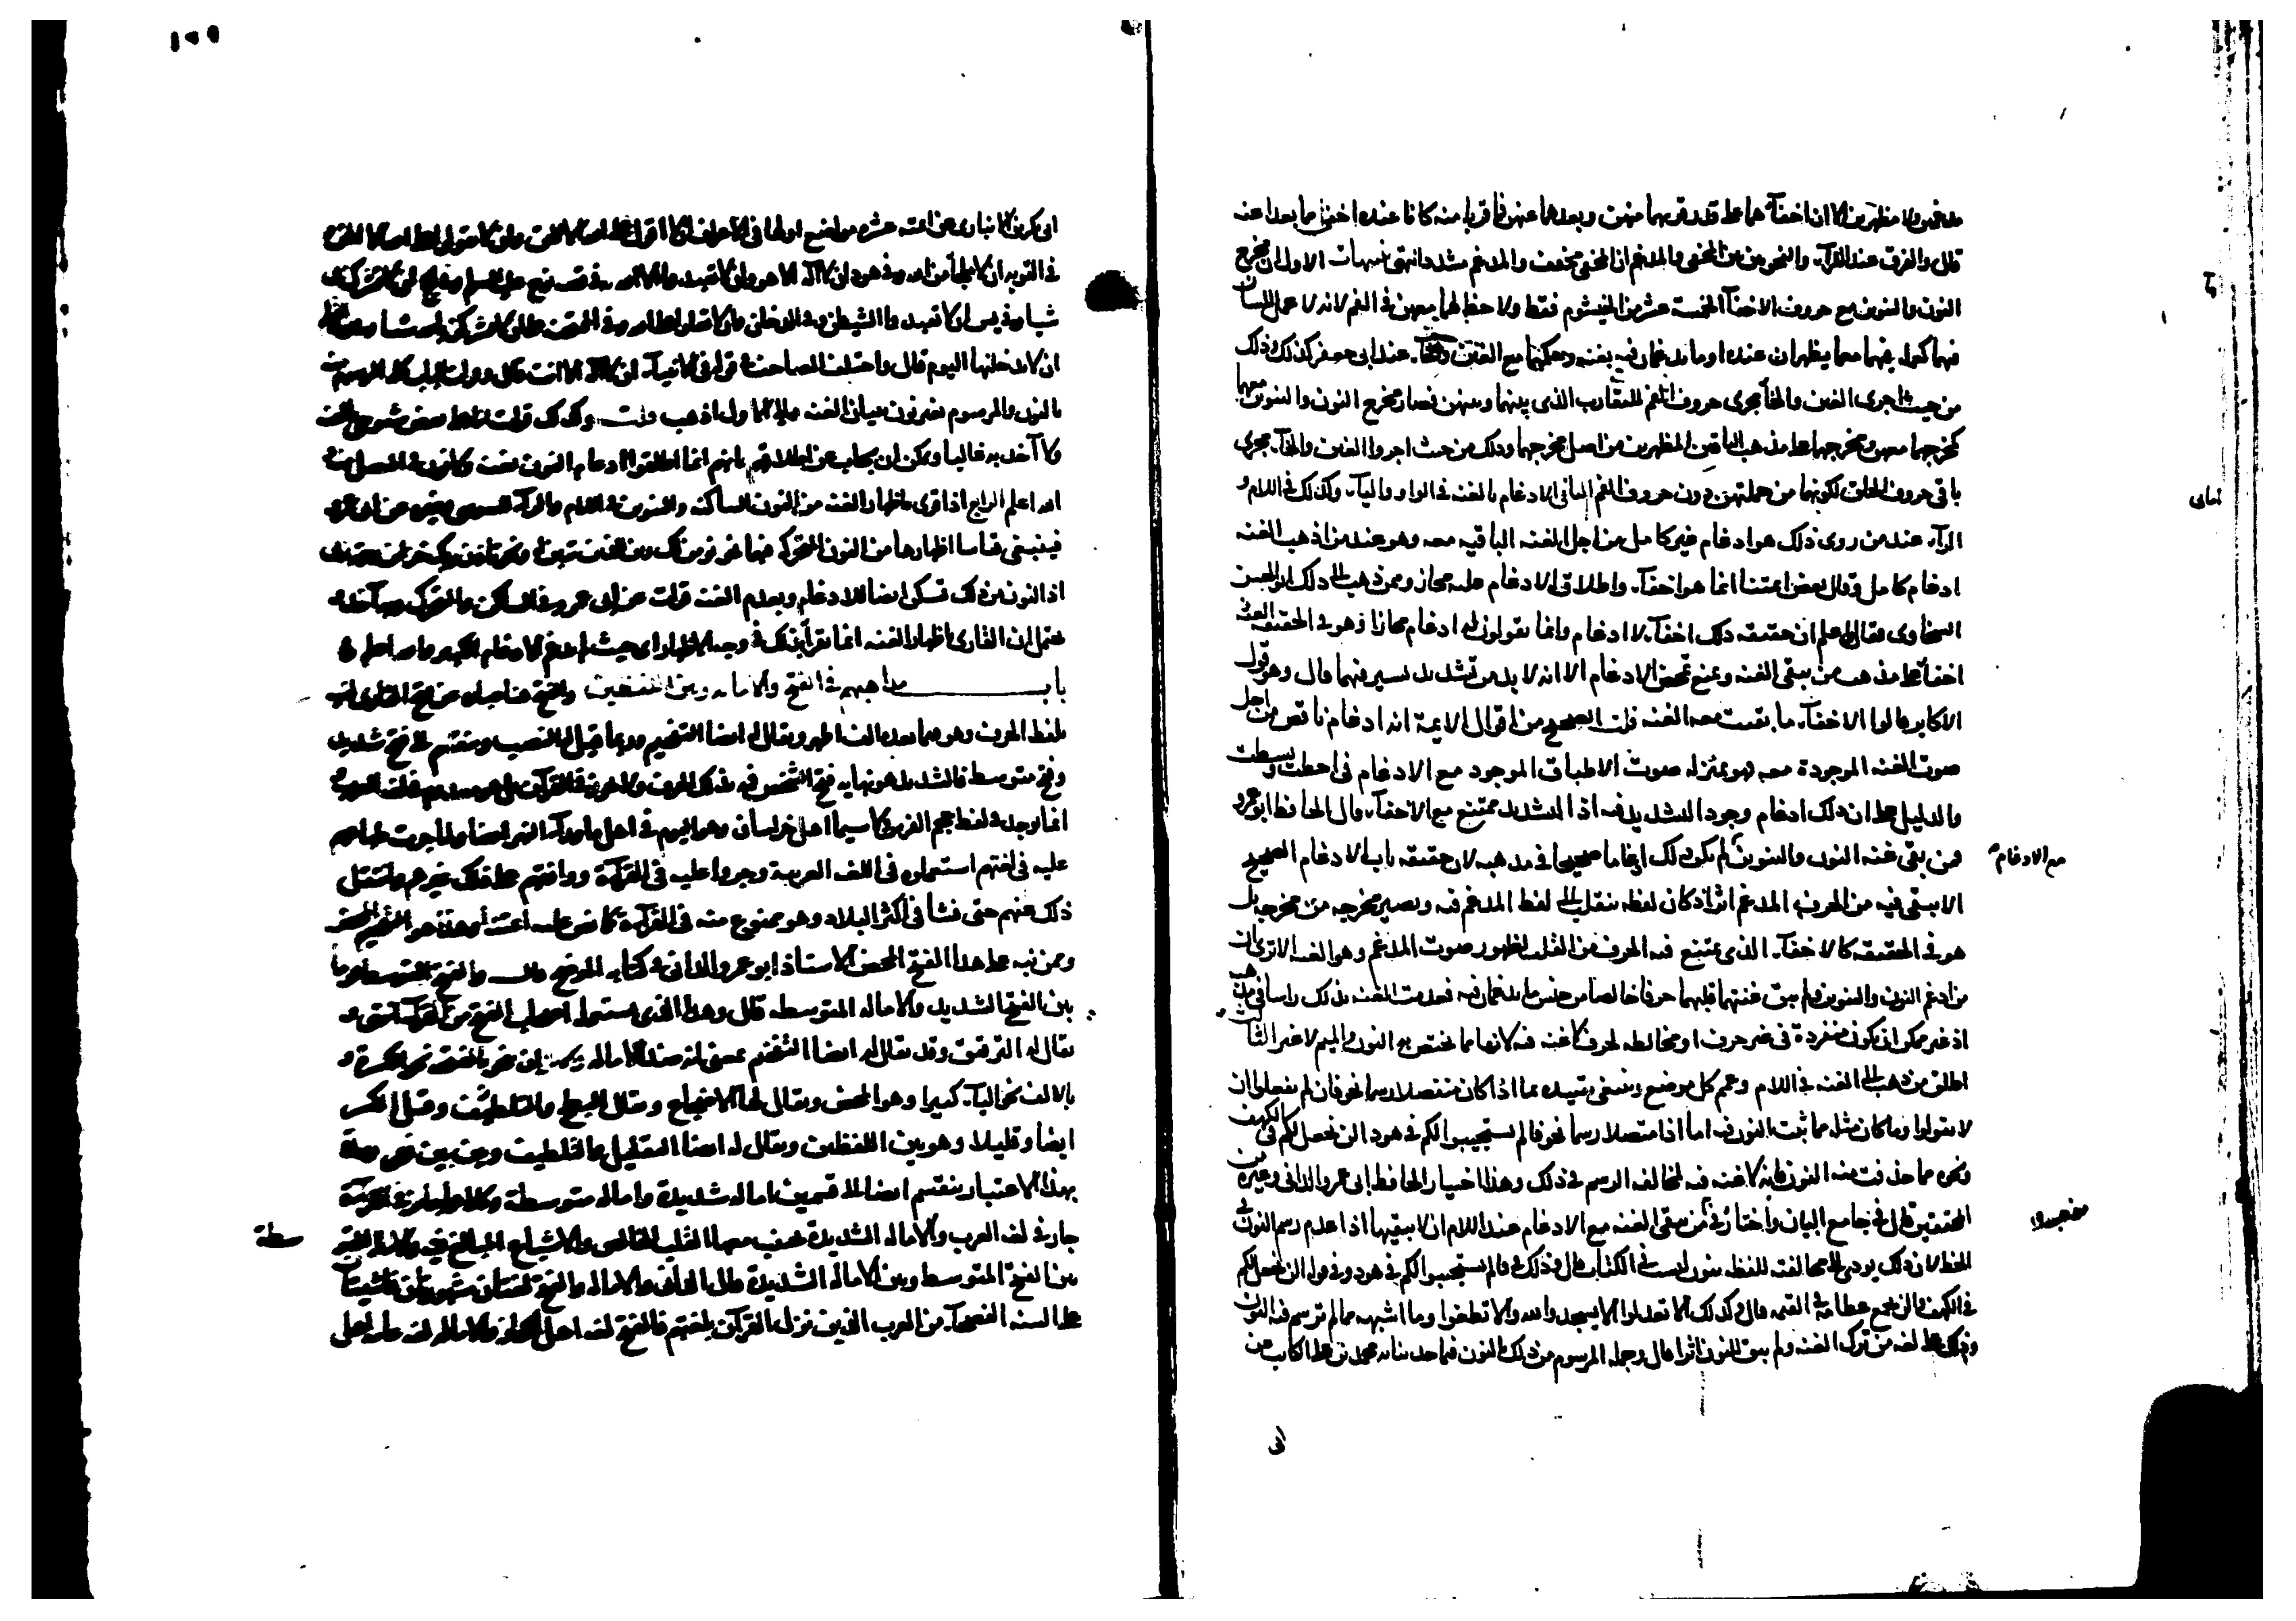 مدغمين ولا مظهرين الا ان اخفآهما على قدر قربهما منهن وبعدهما عنهن فما قربا منه كانا عنده اخفى مما بعدا عنه
قال والفرق عند القرآء والنحويين بين المخفى والمدغم ان المخفى مخفف والمدغم مشدد انتهى تنبيهات الاول ان مخرج
النون والتنوين مع حروف الاخفآ الخمسة عشر من الخيشوم فقط ولا حظ لهما معهن في الفم لانه لا عمل للسان
فيهما كعمله فيهما مع ما يظهران عنده او ما يدغمان فيه بغنه وحكمهما مع الغين والخآ عند ابي جعفر كذلك وذلك
من حيث اجرى الغين والخآ مجرى حروف الفم للتقارب الذي بينهما وبينهن فصار مخرج النون والتنوين معهما
كمخرجهما معهن ومخرجهما على مذهب الباقين المظهرين من اصل مخرجهما وذلك من حيث اجروا الغين والخآ مجرى
باقي حروف الحلق لكونهما من جملتهن دون حروف الفم الثاني الادغام بالغنه في الواو واليآ وكذلك في اللام و
الرآ عند من روى ذلك هو ادغام غير كامل من اجل الغنه الباقيه معه وهو عند من اذهب الغنه
ادغام كامل وقال بعض ائمتنا انما هو اخفآ واطلاق الادغام عليه مجاز وممن ذهب الى ذلك ابو الحسن
السخاوي فقال اعلم ان حقيقه ذلك اخفآ لا ادغام وانما يقولون له ادغام مجازا وهو في الحقيقه
اخفآ على مذهب من يبقى الغنه ويمنع تمحض الادغام الا انه لا بد من تشديد يسير فيهما قال وهو قول
الاكابر قالوا الاخفآ ما بقيت معه الغنه قلت الصحيح من اقوال الايمة انه ادغام ناقص من اجل
صوت الغنه الموجودة معه فهو بمنزله صوت الاطباق الموجود مع الادغام في احطت وبسطت
والدليل على ان ذلك ادغام وجود التشديد فيه اذ التشديد ممتنع مع الاخفآ قال الحافظ ابو عمرو
فمن بقى غنه النون والتنوين لم يكن ذلك ادغاما صحيحا في مذهبه لان حقيقه باب الادغام الصحيح
مع الادغام
الا يبقى فيه من الحرف المدغم اثر اذ كان لفظه ينقلب الى لفظ المدغم فيه ويصير مخرجه من مخرجه بل
هو في الحقيقه كالاخفآ الذي يمتنع فيه الحرف من القلب لظهور صوت المدغم وهو الغنه الا ترى ان
من ادغم النون والتنوين ولم يبق غنتهما قلبهما حرفا خالصا من جنس ما يدغمان فيه فعدمت الغنه بذلك راسا في مذهبه
اذ غير ممكن ان تكون منفردة في غير حرف او مخالطه لحرف لا غنه فيه لانها مما تختص به النون والميم لا غير الثالث
اطلق من ذهب الى الغنه في اللام وعمم كل موضع وينبغي تقييده بما اذا كان منفصلا رسما نحو فان لم تفعلوا ان
لا يقولوا وما كان مثله مما ثبتت النون فيه اما اذا متصلا رسما نحو فالم يستجيبوا لكم في هود الن نجعل لكم في الكهف
ونحوه مما حذفت منه النون فانه لا غنه فيه لمخالفه الرسم في ذلك وهذا اختيار الحافظ ابي عمرو الداني وغيره من
المحققين قال في جامع البيان واختار في من يبقى الغنه مع الادغام عند اللام ان لا يبقيها اذا عدم رسم النون في
الخط لان ذلك يودي الى مخالفته للفظه بنون ليست في الكتاب قال وذلك في قوله فالم يستجيبوا لكم في هود وفي قوله الن نجعل لكم
في الكهف والن نجمع عظامه في القيمه قال وكذلك الا تعدلوا الا يسجدوا لله والا تطغوا وما اشبهه مما لم ترسم فيه النون
وذلك على لغه من ترك الغنه ولم يبق للنون اثرا قال وجمله المرسوم من ذلك بالنون فيما حدثنا به محمد بن على الكاتب عن
ابي
ابي بكر بن الانباري عن ائمته عشرة مواضع اولها في الاعراف ان لا اقول على الله الا الحق وان لا يقولوا على الله الا الحق
في التوبه ان لا ملجأ من الله وفي هود ان لا اله الا هو وان لا تعبدوا الا الله في قصه نوح عليه السلم وفي الحج ان لا تشرك بي
شيا وفي يس ان لا تعبدوا الشيطن وفي الدخان وان لا تعلوا على الله وفي الممتحنه على ان لا يشركن بالله شيا
ان لا يدخلنها اليوم قال واختلفت المصاحف في قوله في الانبيآ ان لا اله الا انت قال وقرات الباب كله المرسوم منه
بالنون والمرسوم بغير نون ببيان الغنه والى الاول اذهب قلت وكذلك قرات انا على بعض شيوخي بالغنه
ولا آخذ به غالبا ويمكن ان يجاب عن اطلاقهم بانهم انما اطلقوا ادغام النون بغنه ولا نون في المتصل منه
الله اعلم الرابع اذا قرى باظهار الغنه من النون الساكنه والتنوين في اللام والرآ للسوسي وغيره عن ابي عمرو
فينبغي قياسا اظهارها من النون المتحركه فيهما نحو نومن لك زين للذين تبين له ونحو تاذن ربك خزائن رحمه ربي
اذ النون من ذلك تسكن ايضا للادغام وبعدم الغنه قرات عن ابي عمرو في الساكن والمتحرك وبه آخذ و
يحتمل ان القاري باظهار الغنه انما يقرأ بذلك في وجه الاظهار اي حيث لم يدغم الادغام الكبير والله اعلم
باب مذاهبهم في الفتح والاماله وبين اللفظين والفتح هنا عباره عن فتح القاري لفيه
بلفظ الحرف وهو فيما بعده الف اظهر ويقال له ايضا التفخيم وربما قيل له النصب وينقسم الى فتح شديد
وفتح متوسط فالشديد هو نهايه فتح الشخص فمه بذلك الحرف ولا يجوز في القرآن بل هو معدوم في لغه العرب
انما يوجد في لفظ عجم الفرس ولا سيما اهل خراسان وهو اليوم في اهل ما ورآ النهر ايضا ولما جرت طباعهم
عليه في لغتهم استعملوه في اللغه العربيه وجروا عليه في القرآة ووافقهم على ذلك غيرهم وانتقل
ذلك عنهم حتى فشا في اكثر البلاد وهو ممنوع منه في القرآة كما نص عليه ائمتنا وهذا هو التفخيم المحض
وممن نبه على هذا الفتح المحض الاستاذ ابو عمرو الداني في كتابه الموضح قال والفتح المتوسط هو ما
بين الفتح الشديد والاماله المتوسطه قال وهذا الذي يستعمله اصحاب الفتح من القرآ انتهى و
يقال له الترقيق وقد يقال له ايضا التفخيم بمعنى انه ضد الاماله والاماله ان تنحو بالفتحه نحو الكسرة و
بالالف نحو اليآ كثيرا وهو المحض ويقال لها الاضجاع ويقال البطح والتلطيف وقيل الكسر
ايضا وقليلا وهو بين اللفظين ويقال له ايضا التقليل والتلطيف وبين بين فهي
بهذا الاعتبار تنقسم ايضا الى قسمين اماله شديدة واماله متوسطة وكلاهما جائز في القرآة
جار في لغه العرب والاماله الشديدة يجتنب معها القلب الخالص والاشباع المبالغ فيه والاماله
بين الفتح المتوسط وبين الاماله الشديدة قال الداني والاماله والفتح لغتان مشهورتان فاشيتان
على السنه الفصحآ من العرب الذين نزل القرآن بلغتهم فالفتح لغه اهل الحجاز والاماله لغه عامه اهل